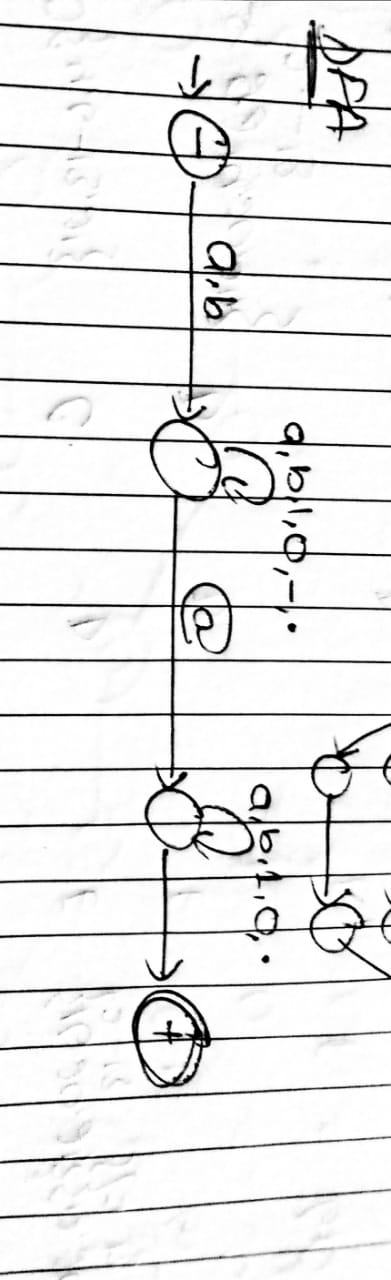 DFA
-
a,b
a,b,1,0,-,.
@
a,b,1,0,.
+